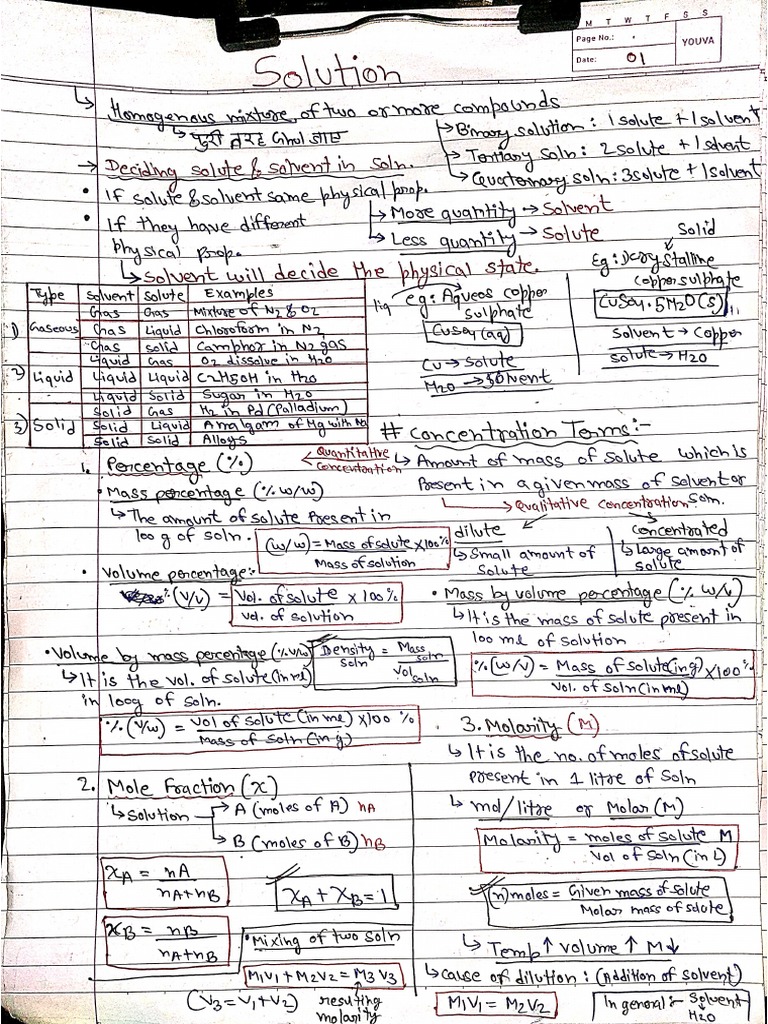 M T W T F S S
Page No.:
YOUVA
Date: 01
Solution
↳ Homogenous mixture of two or more compounds
↳ पुरी तरह Ghul जाए
↳ Binary solution: 1 solute + 1 solvent
→ Tertiary soln: 2 solute + 1 solvent
↳ Quaternary soln: 3 solute + 1 solvent
→ Deciding solute & solvent in soln.
• If solute & solvent same physical prop.
↳ More quantity → Solvent
↳ Less quantity → Solute
• If they have different
physical prop.
↳ Solvent will decide the physical state.
Type Solvent Solute Examples
Gas Gas Mixture of N2 & O2
1) Gaseous Gas Liquid Chloroform in N2
Gas solid Camphor in N2 gas
Liquid Gas O2 dissolve in H2O
2) Liquid Liquid Liquid C2H5OH in H2O
Liquid Solid Sugar in H2O
Solid Gas H2 in Pd (Palladium)
3) Solid Solid Liquid Amalgam of Hg with Na
Solid Solid Alloys
liq eg: Aqueos copper
sulphate
CuSO4 (aq)
Cu → Solute
H2O → Solvent
Solid
Eg: Crystalline
copper sulphate
CuSO4 · 5H2O (s)
Solvent → Copper
solute → H2O
# Concentration Terms:-
↳ Amount of mass of solute which is
present in a given mass of solvent or
soln.
Quantitative
concentration
→ Qualitative concentration
dilute
↳ Small amount of
solute
concentrated
↳ Large amount of
solute
1. Percentage (%)
• Mass percentage (% w/w)
↳ The amount of solute present in
100 g of soln.
(w/w) = Mass of solute × 100%
Mass of solution
• Volume percentage:-
(v/v) = Vol. of solute × 100 %
vol. of solution
• Mass by volume percentage (% w/v)
↳ It is the mass of solute present in
100 ml of solution
% (w/v) = Mass of solute (in g) × 100%
Vol. of soln (in ml)
• Volume by mass percentage (% v/w)
↳ It is the vol. of solute (in ml)
in 100g of soln.
Density soln = Mass soln
Vol soln
% (v/w) = Vol of solute (in ml) × 100 %
Mass of soln (in g)
2. Mole Fraction (x)
↳ Solution → A (moles of A) nA
↳ B (moles of B) nB
xA = nA
nA + nB
xA + xB = 1
xB = nB
nA + nB
• Mixing of two soln
M1V1 + M2V2 = M3V3
(V3 = V1 + V2) resulting
molarity
3. Molarity (M)
↳ It is the no. of moles of solute
present in 1 litre of Soln
↳ mol/litre or Molar (M)
Molarity = moles of solute M
Vol of Soln (in L)
(n) moles = Given mass of solute
Molar mass of solute
↳ Temp ↑ Volume ↑ M ↓
↳ cause of dilution: (Addition of solvent)
M1V1 = M2V2
In general:- Solvent
↳ H2O